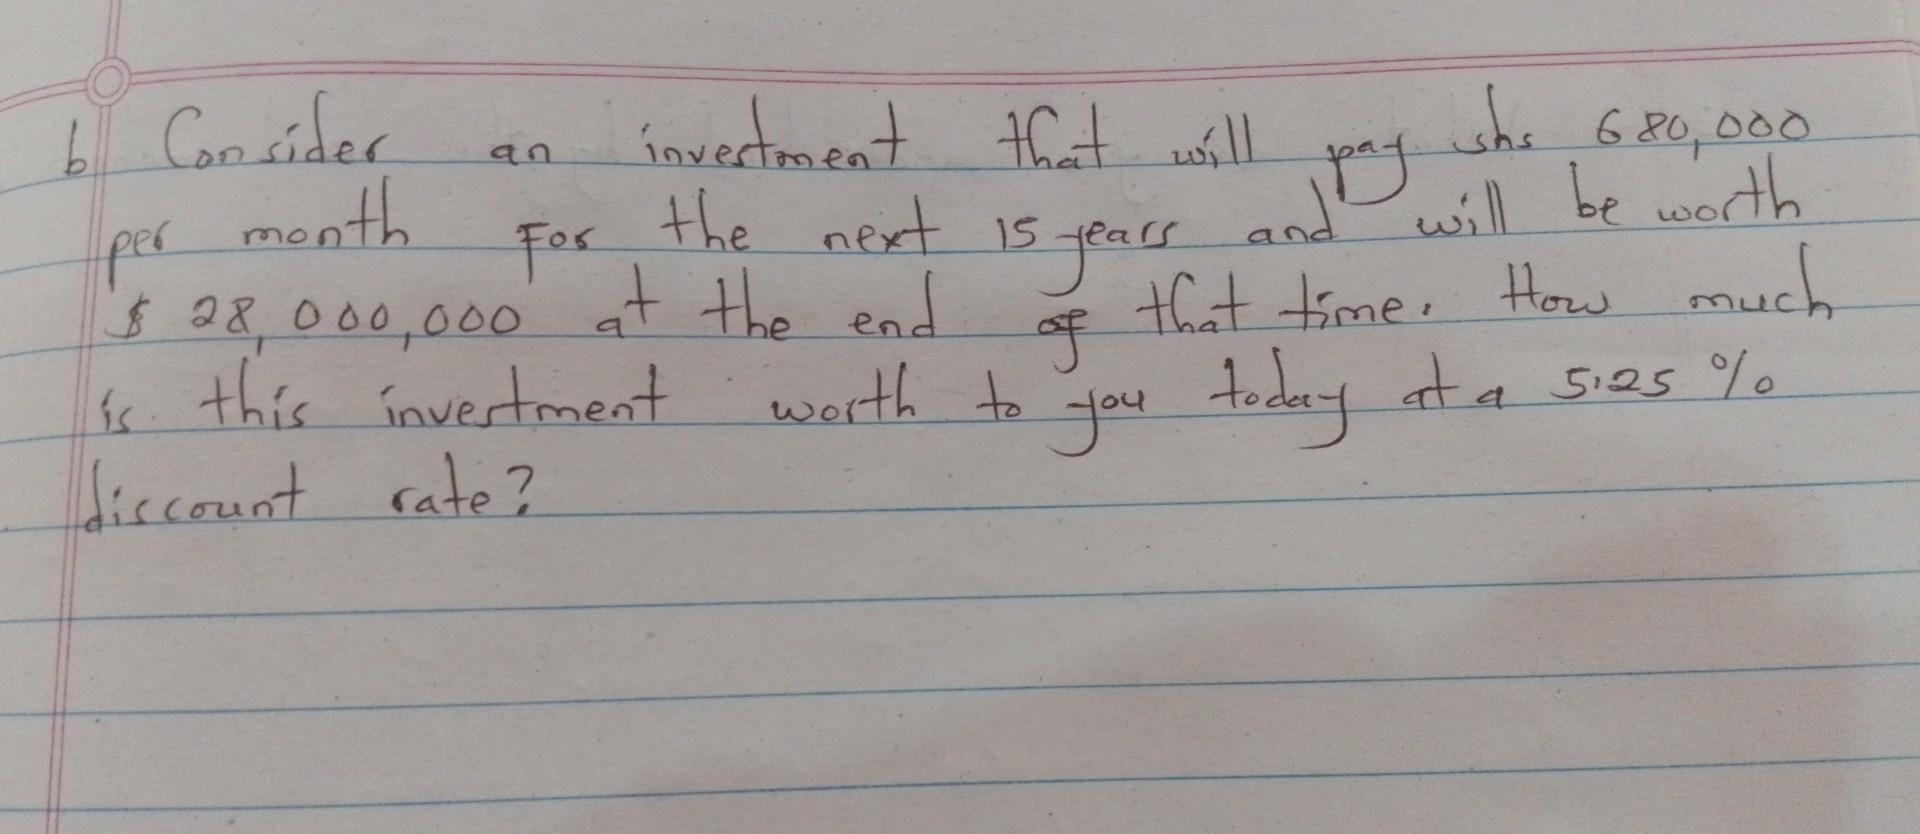 b Consider an investment that will pay shs 680,000
per month For the next 15 years and will be worth
$ 28,000,000 at the end of that time. How much
is this investment worth to you today at a 5.25 %
discount rate?